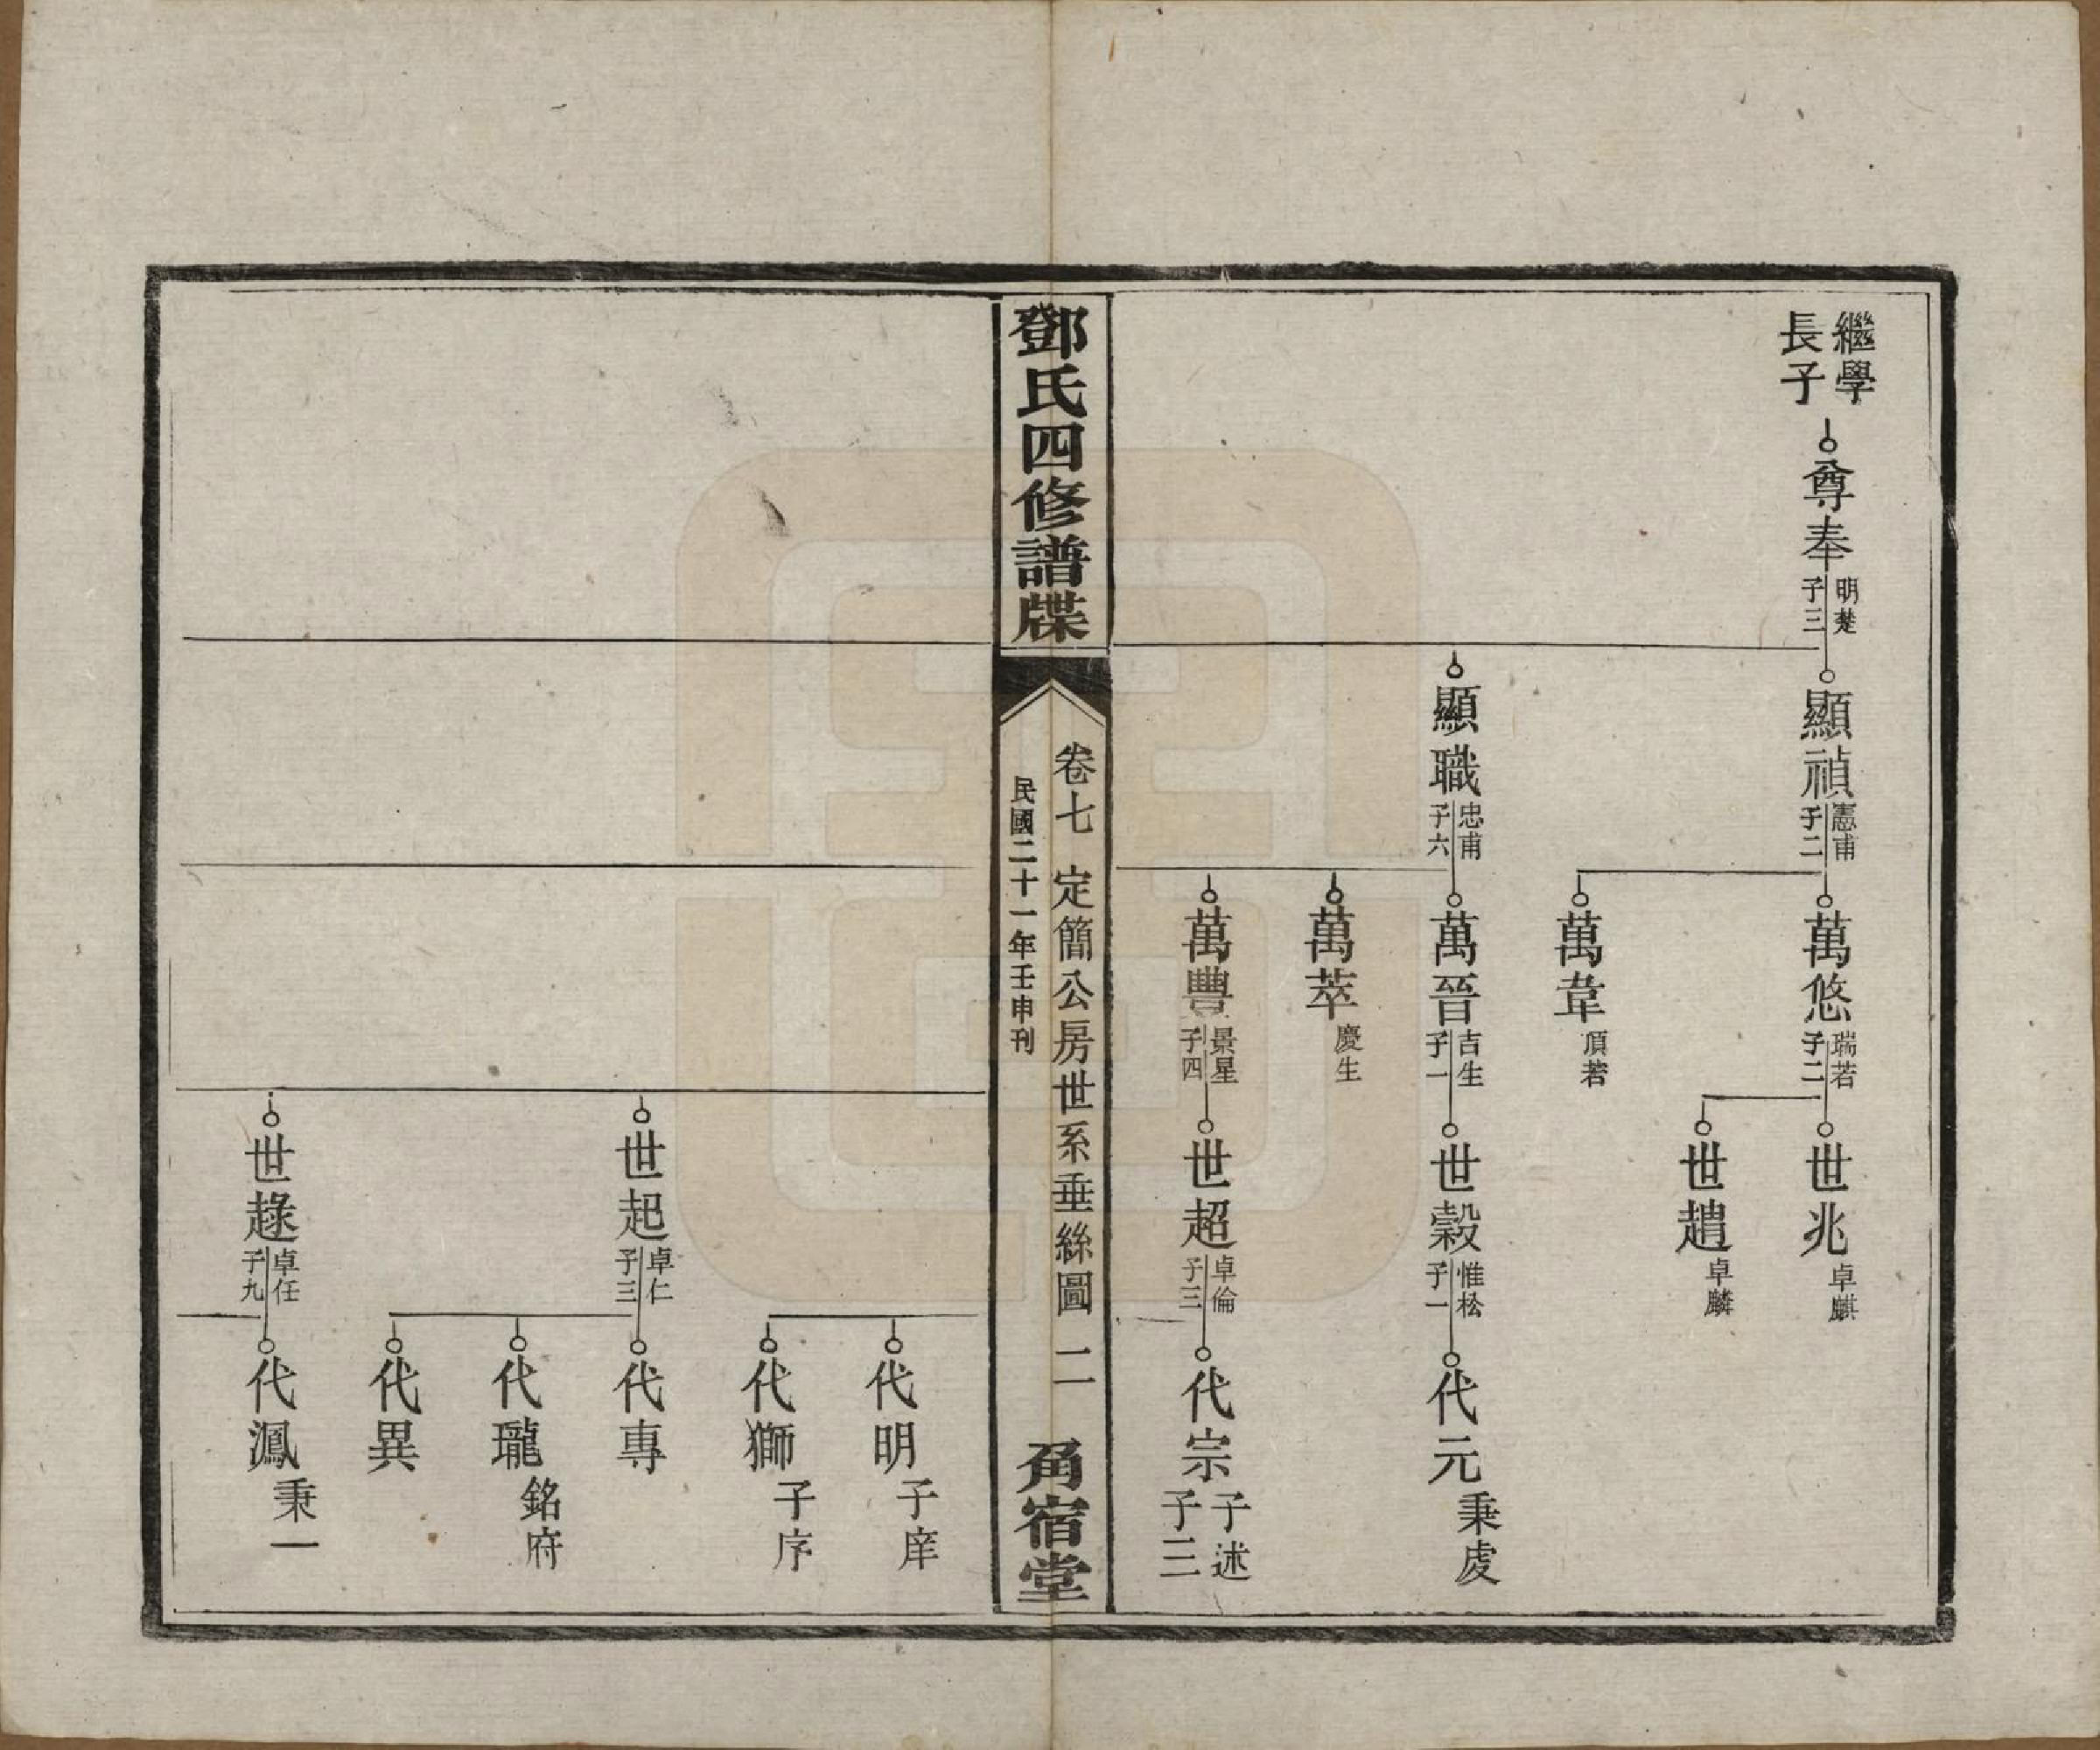 繼學
長子
尊奉
明楚
子三
顯禎
憲甫
子二
萬悠
瑞若
子二
世兆
卓麒
世趙
卓麟
萬韋
頂若
顯職
忠甫
子六
萬晉
吉生
子一
世穀
惟松
子一
代元
秉虔
萬萃
慶生
萬豐
景星
子四
世超
卓倫
子三
代宗
子述
子二
鄧氏四修譜牒
卷七 定簡公房世系垂絲圖 二
民國二十一年壬申刊
角宿堂
代明
子庠
代獅
子序
世起
卓仁
子三
代專
代瓏
銘府
代異
世趢
卓任
子九
代鳳
秉一